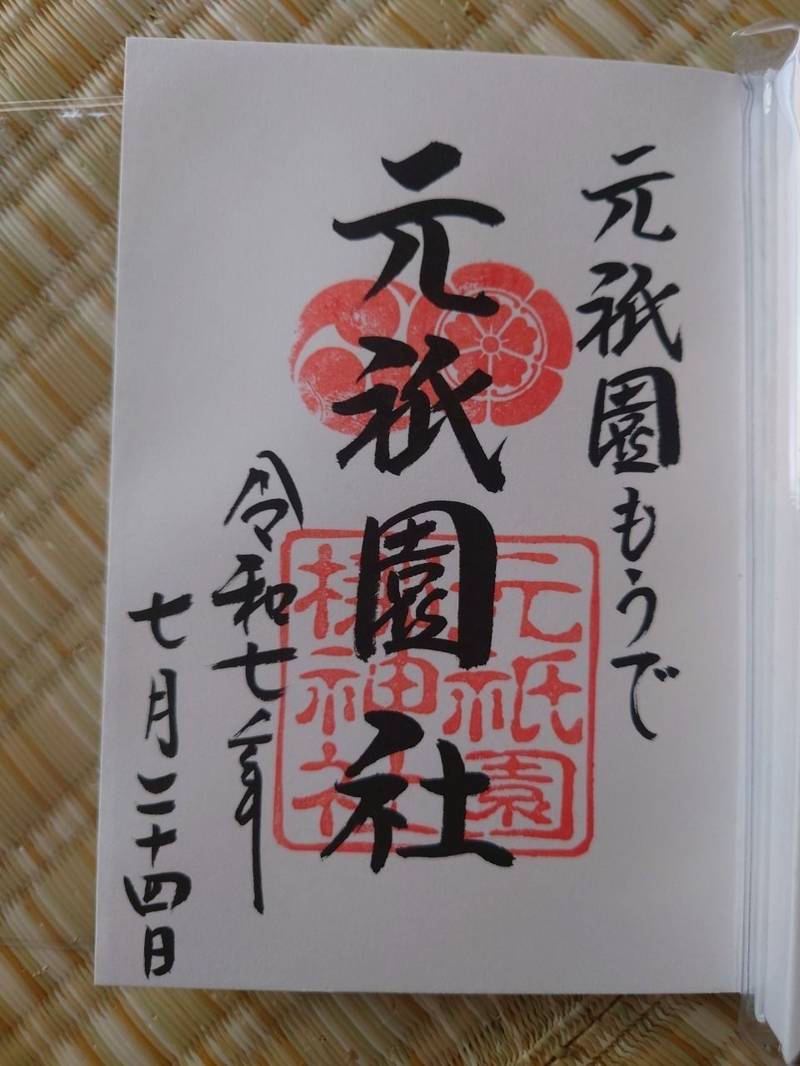 元祇園もうで
元祇園社
令和七年
七月二十四日
元祇園
梛神社